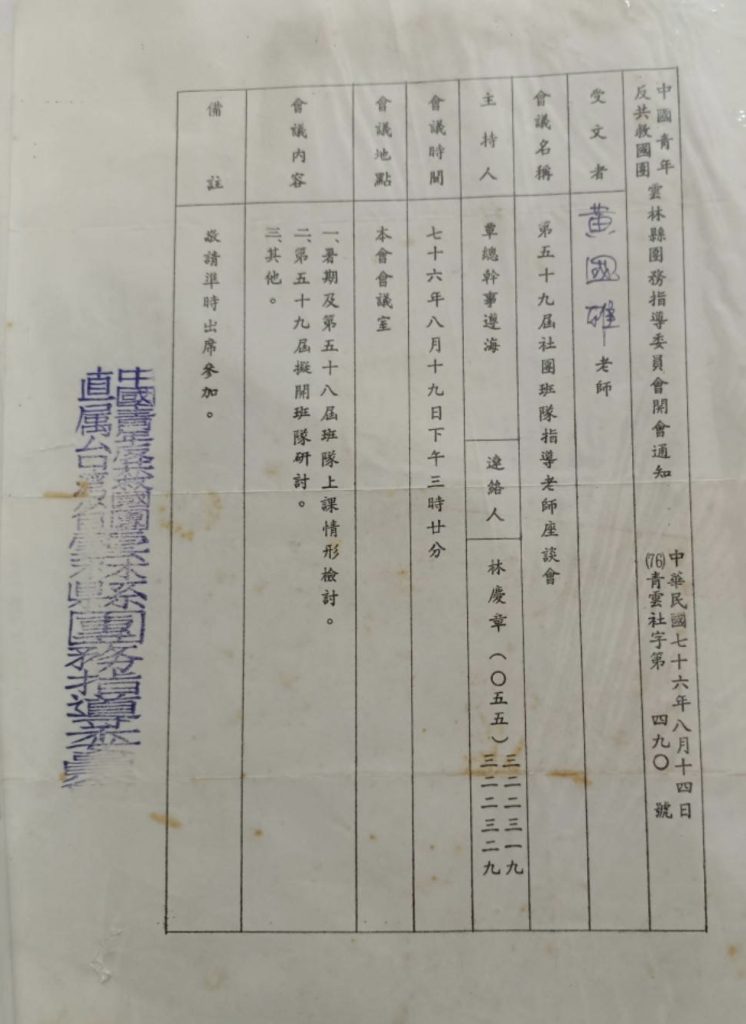 中國青年
反共救國團
雲林縣團務指導委員會開會通知
中華民國七十六年八月十四日
(76)青雲社字第 四九〇 號
受文者
黃國雄老師
會議名稱
第五十九屆社團班隊指導老師座談會
主持人
覃總幹事遵海
連絡人
林慶章(〇五五)三二二三一九
三二二三二九
會議時間
七十六年八月十九日下午三時廿分
會議地點
本會會議室
會議內容
一、暑期及第五十八屆班隊上課情形檢討。
二、第五十九屆擬開班隊研討。
三、其他。
備註
敬請準時出席參加。
中國青年反共救國團雲林縣
直属台灣省雲林縣團務指導委員